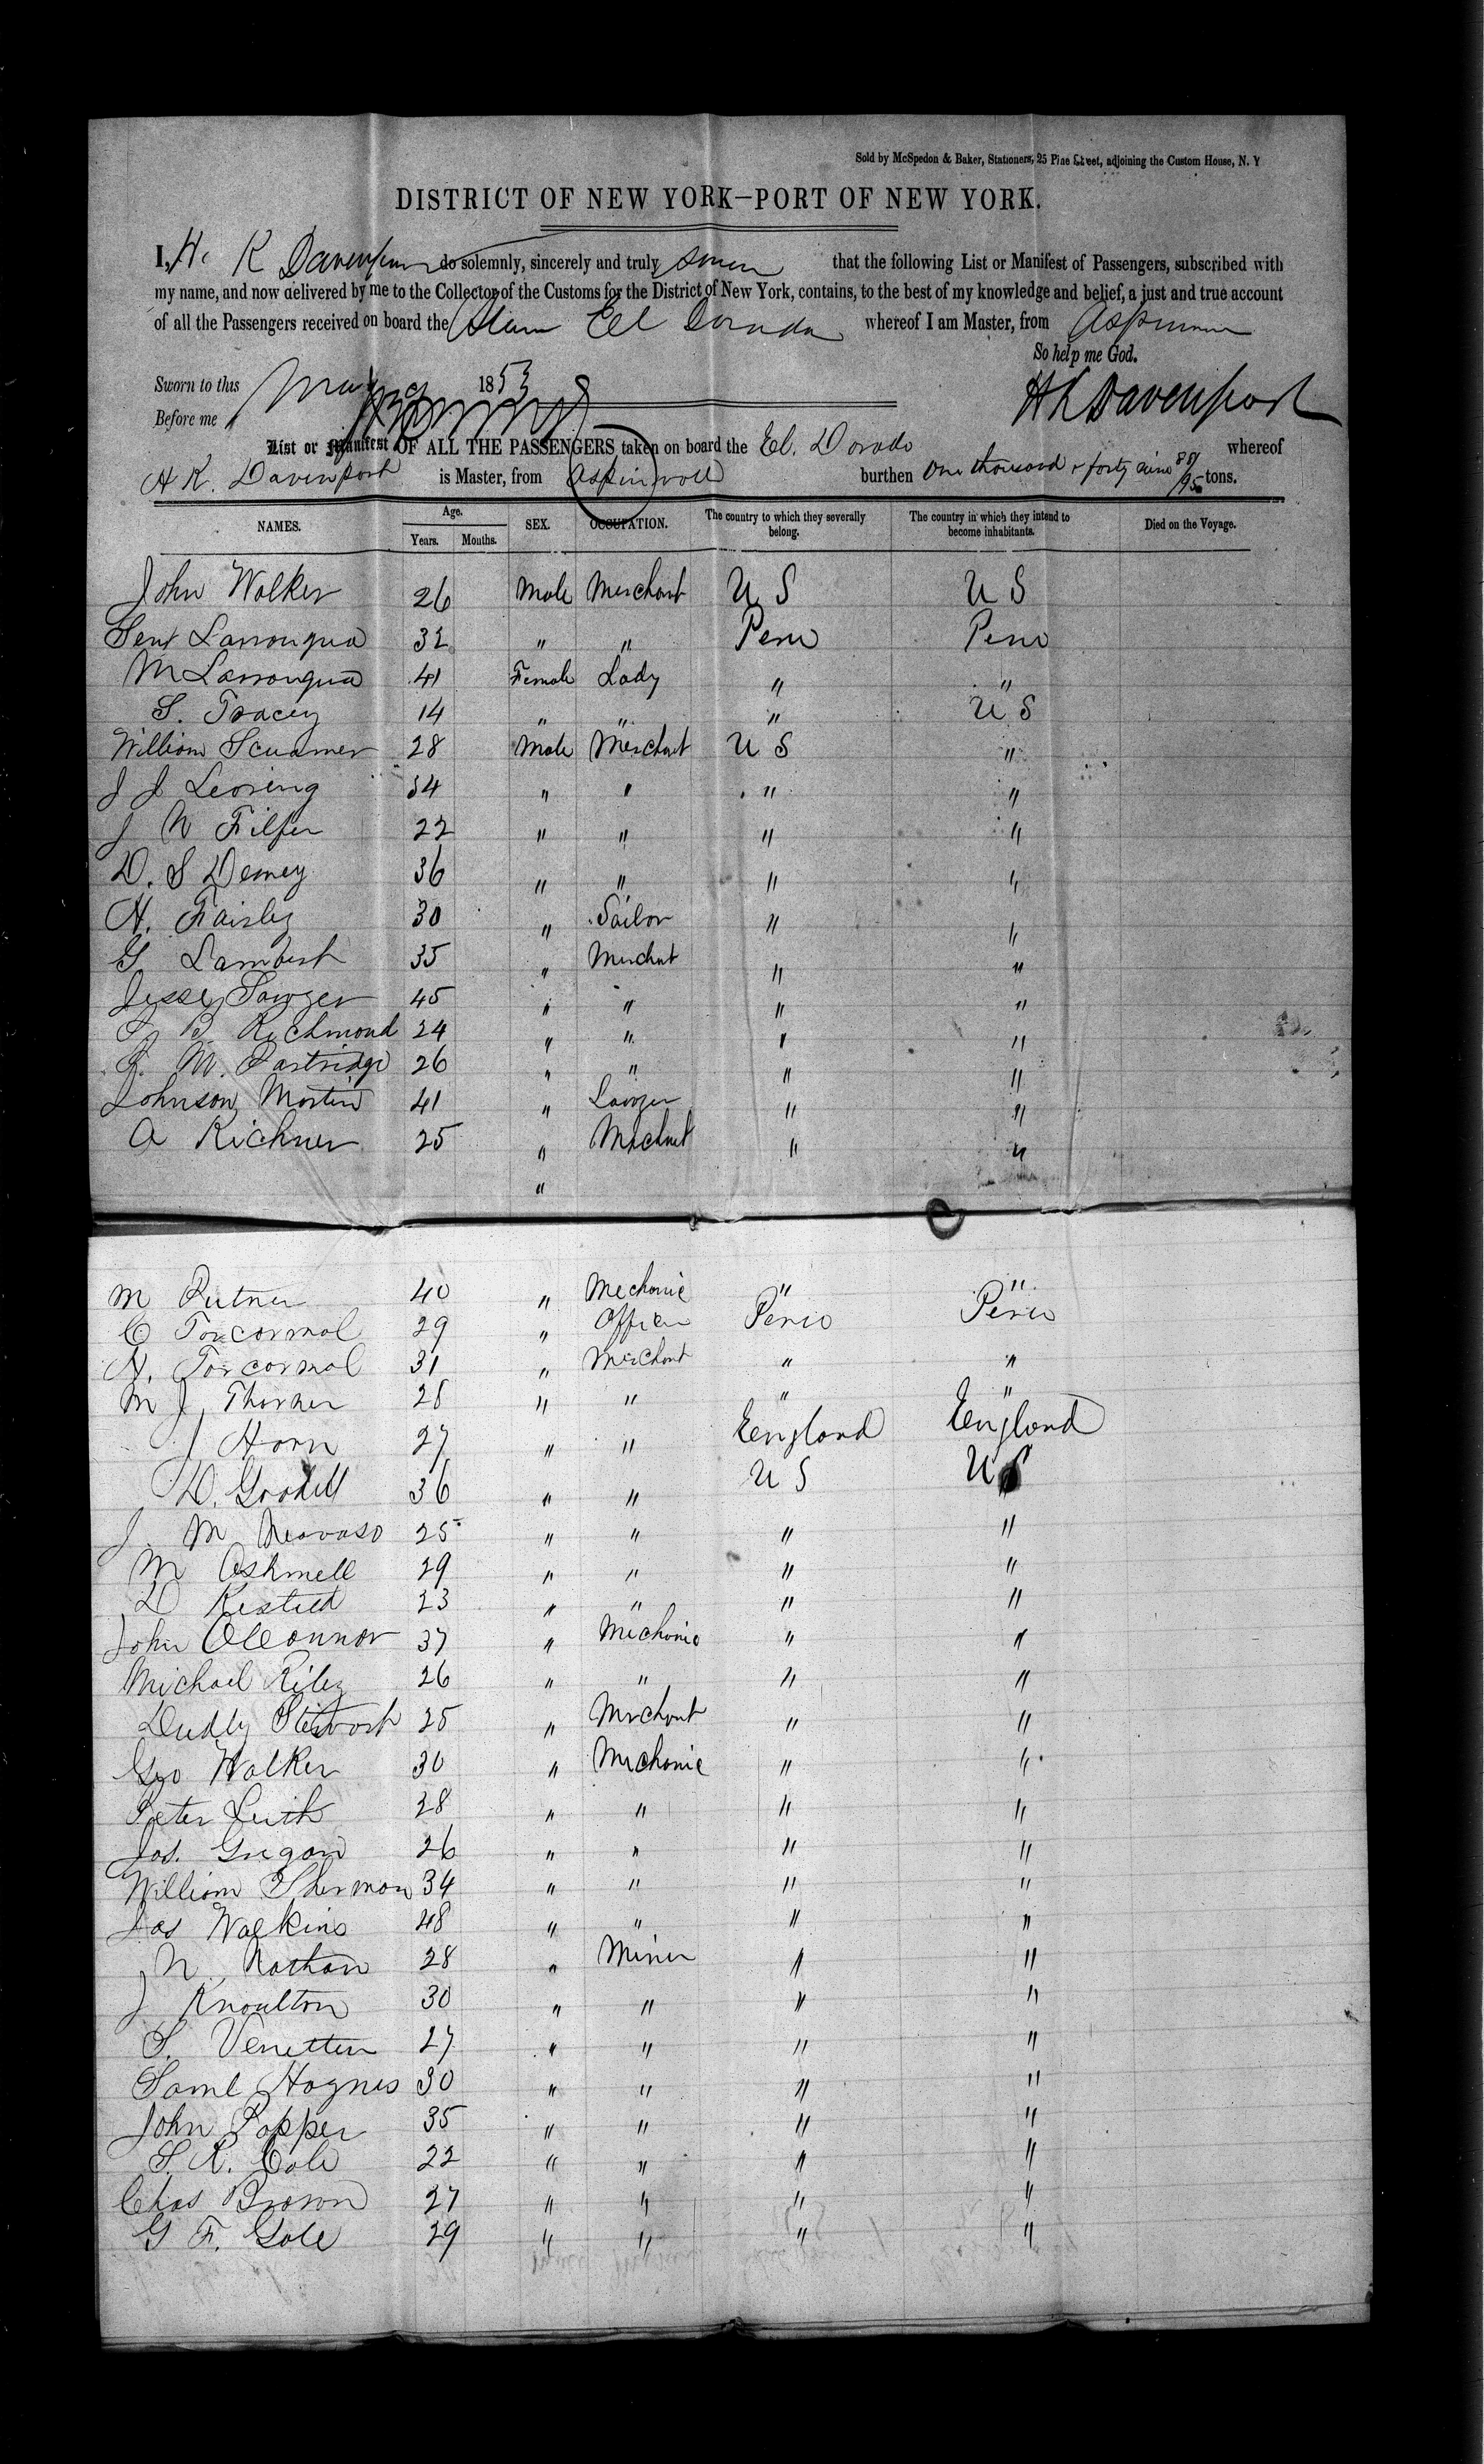 Sold by McSpedon & Baker, Stationers, 25 Pine Street, adjoining the Custom House, N. Y
DISTRICT OF NEW YORK—PORT OF NEW YORK.
I, H. K Davenport do solemnly, sincerely and truly swear that the following List or Manifest of Passengers, subscribed with
my name, and now delivered by me to the Collector of the Customs for the District of New York, contains, to the best of my knowledge and belief, a just and true account
of all the Passengers received on board the Steamr El Dorado whereof I am Master, from Aspinwall
So help me God.
Sworn to this May 1853
Before me
H K Davenport
List or Manifest OF ALL THE PASSENGERS taken on board the El. Dorado whereof
H K. Davenport is Master, from Aspinwall burthen One thousand & forty nine 88/95 tons.
NAMES. Age. Years. Months. SEX. OCCUPATION. The country to which they severally belong. The country in which they intend to become inhabitants. Died on the Voyage.
John Walker 26 Male Merchant U S U S
Larrongua 32 " " Peru Peru
M Larrongua 41 Female Lady " "
S. Tracey 14 " " " U S
William 28 Male Merchant U S "
J J Leoring 34 " " " "
J N 22 " " " "
D. S Demey 36 " " " "
H. Fairley 30 " Sailor " "
G Lambert 35 " Merchnt " "
Jesse Sawyer 45 " " " "
B. Richmond 24 " " " "
M. Partridge 26 " " " "
Johnson Martin 41 " Lawyer " "
A Richner 25 " Mrchnt " "
"
M Putner 40 " Mechanic " "
C Torcormal 29 " Officer Peru Peru
N. Torcormal 31 " Merchant " "
M J Thorner 28 " " " "
J Horn 27 " " England England
D. Goodell 36 " " U S U S
J. M 25 " " " "
M Ashmell 29 " " " "
D 23 " " " "
John OConnor 37 " Mechanic " "
Michael Riley 26 " " " "
Dudly Stewart 25 " Mrchant " "
Geo Walker 30 " Mechanic " "
Peter Leith 28 " " " "
Jos. Gregan 26 " " " "
William Sherman 34 " " " "
Jas Walkins 48 " " " "
N. Nathan 28 " Miner " "
J Knoulton 30 " " " "
S. Venetten 27 " " " "
Saml Haynes 30 " " " "
John Popper 35 " " " "
S. R. Cole 22 " " " "
Chas Brown 27 " " " "
G F. Gole 29 " " " "